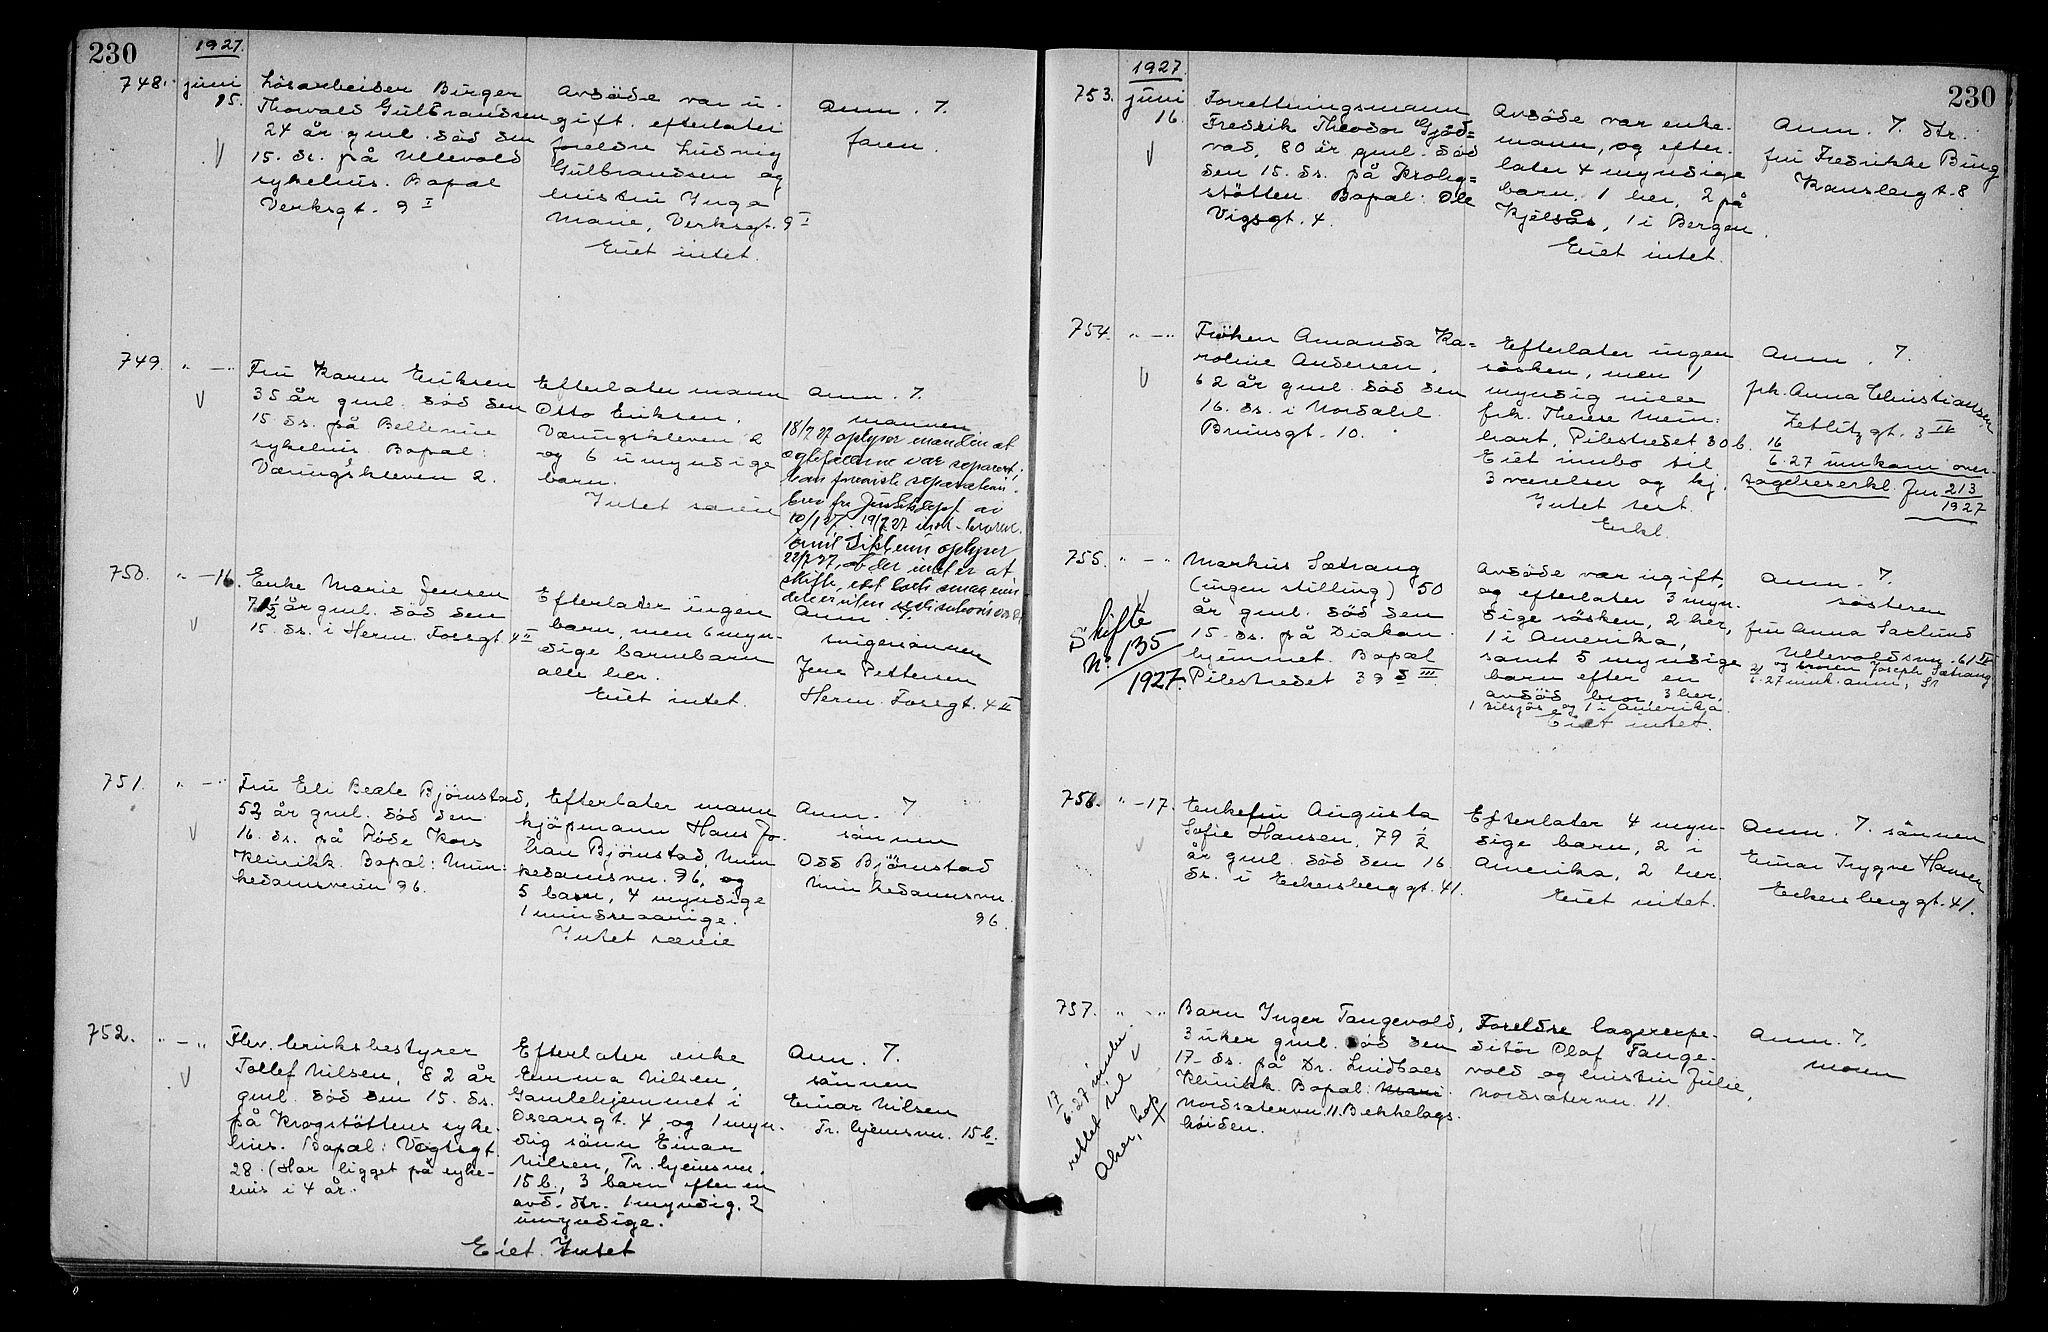 230
1927.
748. juni 15.
Løsarbeider Birger
Thorvald Gulbrandsen
24 år gml. död den
15. ds. på Ullevold
sykehus. Bopæl
Verksgt. 9 I
Avdöde var u-
gift. efterlater
foreldre Ludvig
Gulbrandsen og
hustru Inga
Marie, Verksgt. 9 I
Eiet intet.
Anm. 7.
faren.
749. " — "
Fru Karen Eriksen
35 år gml. död den
15. ds. på Bellevue
sykehus. Bopæl:
Væringskleven 2.
Efterlater mann
Otto Eriksen.
Væringskleven 2
og 6 umyndige
barn.
Intet særeie
Anm. 7.
mannen
18/7 27 oplyser manden at
ektefellene var separert.
separations-
brev fra Justisdept. av
10/1 27. 19/7 27
oplyser
22/7 27, at der intet er at
skifte,
750. " — 16.
Enke Marie Jensen
71½ år gml. död den
15. ds. i Herm. Fossgt. 4 II
Efterlader ingen
barn, men 6 myn-
dige barnebarn
alle her.
Eiet intet.
Anm. 7.
svigersönnen
Jens Pettersen
Herm. Fossgt. 4 II
751. " — "
Fru Eli Beate Björnstad,
52 år gml. död den
16. ds. på Röde Kors
Klinikk. Bopæl: Mun-
kedamsveien 96.
Efterlater mann
kjöpmann Hans Jo-
han Björnstad, Mun
kedamsvn. 96, og
5 barn, 4 myndige
1 mindreaarige.
Intet særeie
Anm. 7
sönnen
Odd Björnstad
Munkedamsvn.
96.
752. " — "
Fhv. bruksbestyrer
Tollef Nilsen, 82 år
gml. död den 15. ds.
på Krogstöttens syke-
hus. Bopæl: Vogtsgt.
28. (Har ligget på syke-
hus i 4 år.
Efterlater enke
Emma Nilsen,
Gamlehjemmet i
Oscarsgt. 4, og 1 myn-
dig sönn Einar
Nilsen, Tr. hjemsvn.
15 b., 3 barn efter en
avd. dtr. 1 myndig, 2
umyndige.
Eiet Intet
Anm. 7.
sönnen
Einar Nilsen
Tr. hjemsvn. 15 b.
230
1927.
753. juni 16.
Forretningsmann
Fredrik Theodor Gjöd=
vad, 80 år gml. död
den 15. ds. på Krohg=
stötten. Bopæl: Ole
Vigsgt. 4.
Avdöde var enke-
mann, og efter-
later 4 myndige
barn. 1 her, 2 på
Kjelsås, 1 i Bergen.
Eiet intet.
Anm. 7. dtr.
fru Fredrikke Bing
Kanslergt. 8
754. " — "
Fröken Amanda Ka=
roline Andersen,
62 år gml. död den
16. ds. i Nordahl
Brunsgt. 10.
Efterlater ingen
söskén, men 1
myndig niece
frk. Therese Mein-
hart, Pilestredet 30 b.
Eiet innbo til
3 værelser og kj.
Intet test.
Enkl.
Anm. 7.
frk. Anna Christiansen
Zetlitzgt. 3 IV
16
6.27 innkom over-
tagelseserkl. Jnr 213
1927
755. " — "
Skifte
No 135
1927.
Markus Sætrang
(ingen stilling) 50
år gml. död den
15. ds. på Diakon-
hjemmet. Bopæl
Pilestredet 39 d III
Avdöde var ugift,
og efterlater 3 myn-
dige söskén, 2 her,
1 i Amerika,
samt 5 myndige
barn efter en
avdöd bror, 3 her,
og 1 i Amerika
Eiet intet.
Anm. 7.
sösteren
fru Anna Saxlund
Ullevoldsvn. 61 IV
og broren Joseph Sætrang
6.27 innk. anm.
756. " — 17.
Enkefru Augusta
Sofie Hansen, 79 ½
år gml. död den 16
ds. i Eckersberggt. 41.
Efterlater 4 myn-
dige barn, 2 i
Amerika, 2 her.
Eiet intet.
Anm. 7. sönnen
Einar Trygve Hansen
Eckersberggt. 41.
757. " — "
17
6.27 innber.
rettet til
Aker, hop
Barn Inger Tangevold,
3 uker gml. död den
17. ds. på Dr. Lindboes
Klinikk. Bopæl:
Nordsætervn. 11. Bekkelags-
höiden.
Foreldre lagerexpe-
ditör Olaf Tange-
vold og hustru Julie,
Nordsætervn. 11.
Anm. 7.
moren